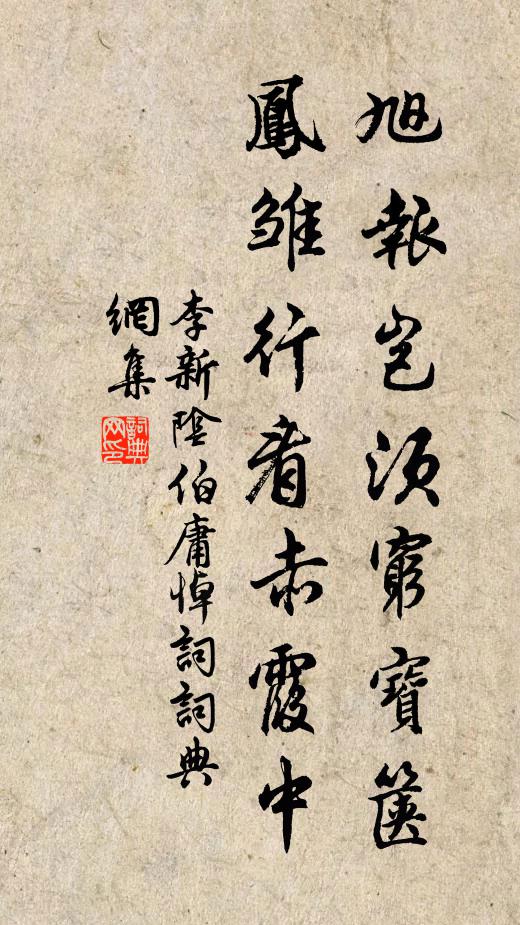 旭報豈須窮寶篋
鳳雛行看赤霞中
李新陰伯庸悼詞詞典
網集
詞典網印